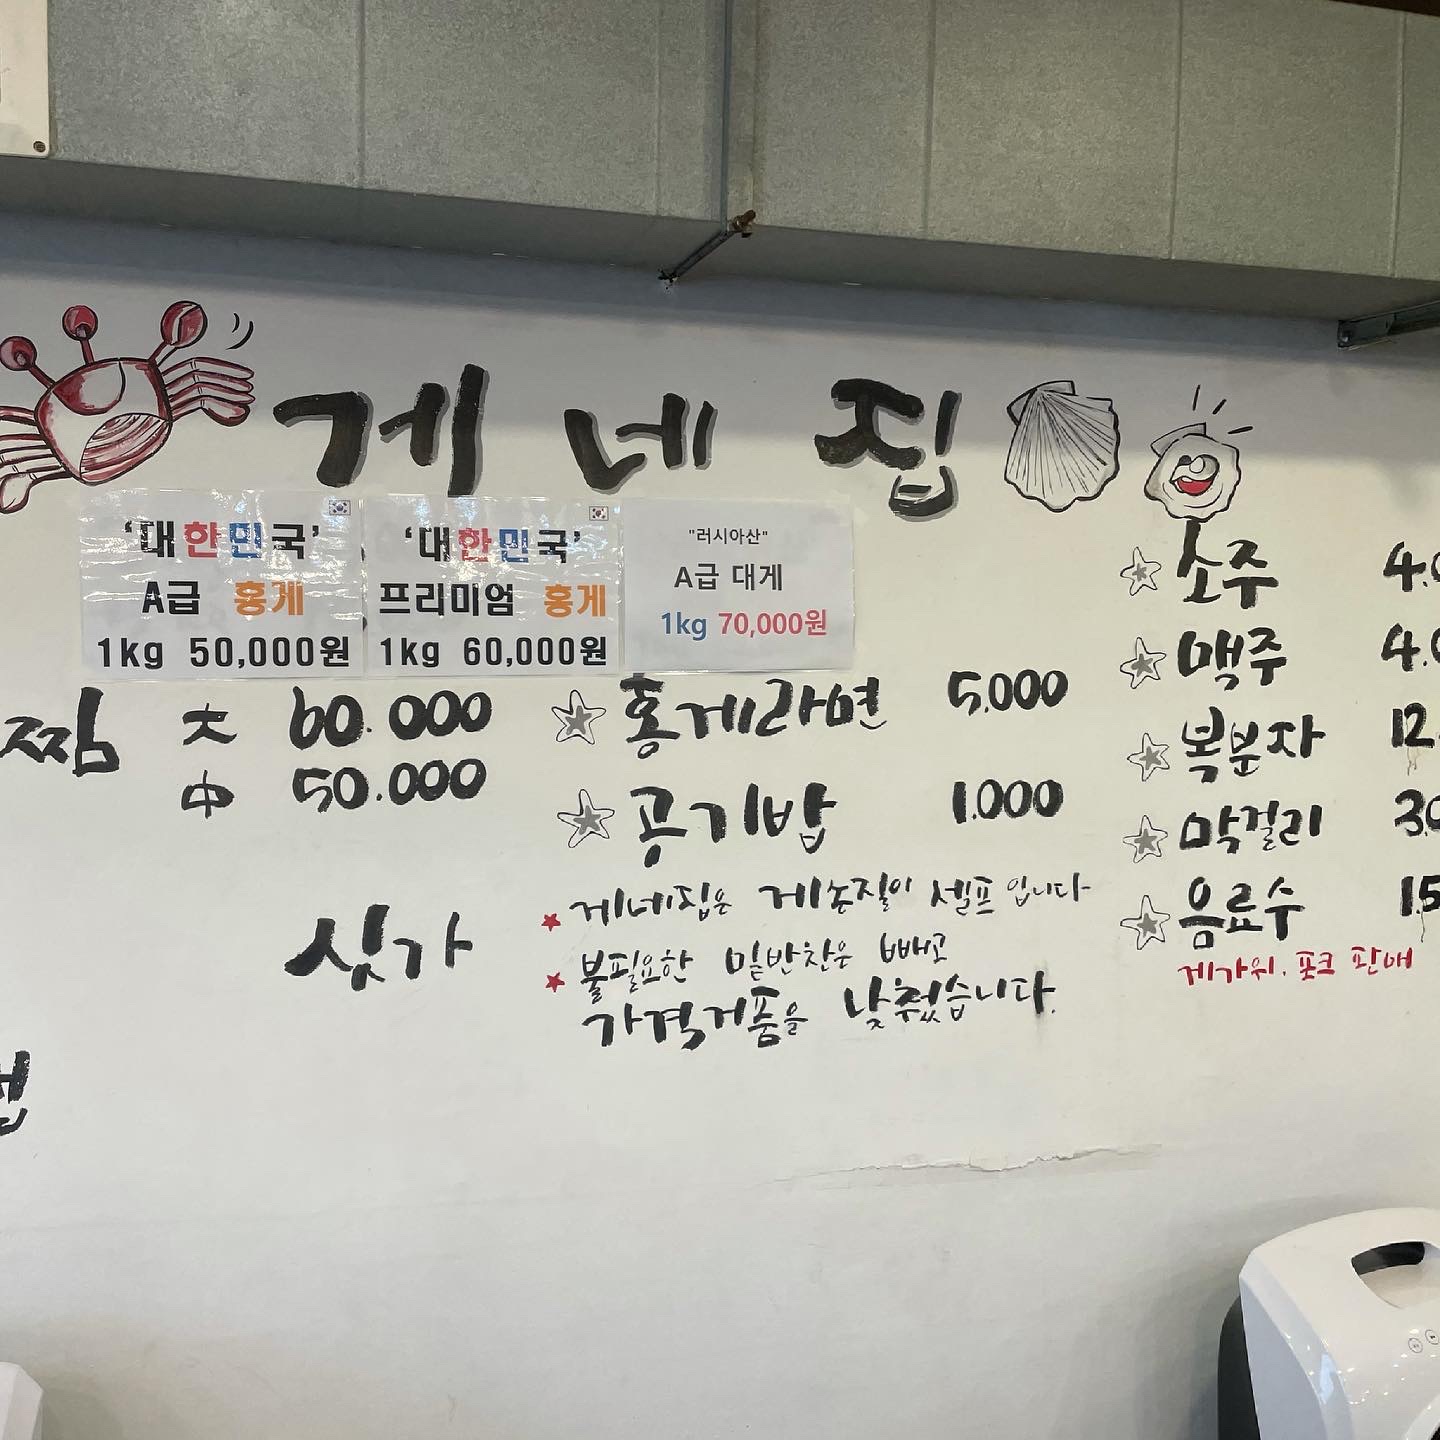 게네집
'대한민국'
A급 홍게
1kg 50,000원
'대한민국'
프리미엄 홍게
1kg 60,000원
"러시아산"
A급 대게
1kg 70,000원
찜 大 60.000
中 50.000
싯가
홍게라면 5.000
공기밥 1.000
게네집은 게손질이 셀프입니다
불필요한 밑반찬은 빼고
가격거품을 낮췄습니다.
소주 4.0
맥주 4.0
복분자 12.
막걸리 3.0
음료수 1.5
게가위. 포크 판매